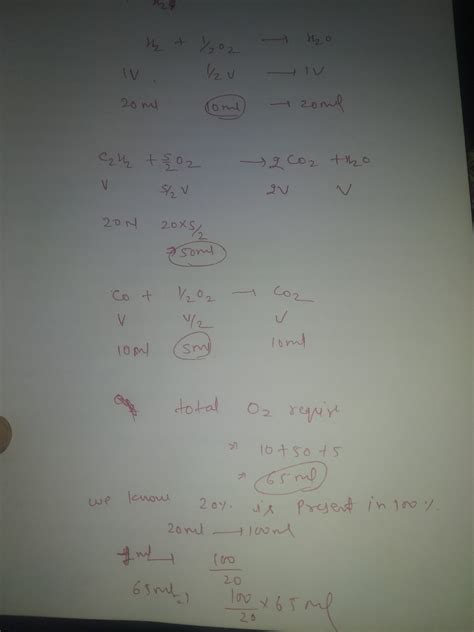 H₂
H₂ + 1/2 O₂ → H₂O
1V 1/2 V → 1V
20 ml 10 ml → 20 ml
C₂H₂ + 5/2 O₂ → 2 CO₂ + H₂O
V 5/2 V 2V V
20 ml 20×5/2
⇒ 50 ml
CO + 1/2 O₂ → CO₂
V V/2 V
10 ml 5 ml 10 ml
total O₂ require
⇒ 10+50+5
⇒ 65 ml
we know 20% is present in 100%
20 ml → 100 ml
1 ml → 100/20
65 ml ⇒ 100/20 × 65 ml